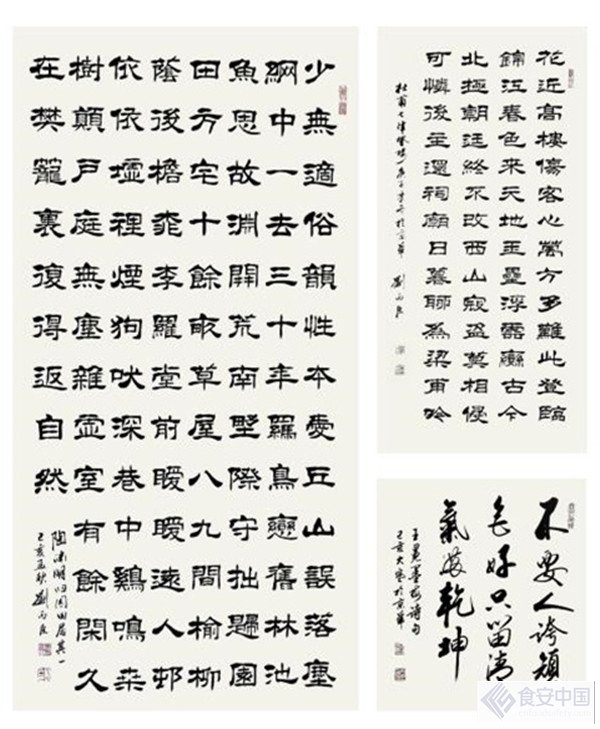 少無適俗韻性本愛丘山誤落塵
網中一去三十年羈鳥戀舊林池
魚思故淵開荒南埜際守拙歸園
田方宅十餘畝草屋八九間榆柳
蔭後檐桃李羅堂前曖曖遠人邨
依依墟裡煙狗吠深巷中鷄鳴桒
樹顛戶庭無塵雜虛室有餘閑久
在樊籠裏復得返自然
陶淵明归園田居其一
己亥孟秋劉
花近高樓傷客心萬方多難此登臨
錦江春色來天地玉壘浮雲變古今
北極朝廷終不改西山寇盜莫相侵
可憐後主還祠廟日暮聊為梁甫吟
杜甫七律登樓一首於京華 劉
不要人誇顏
色好只留清
氣滿乾坤
王冕墨梅詩句
己亥大寒於京華
食安中国